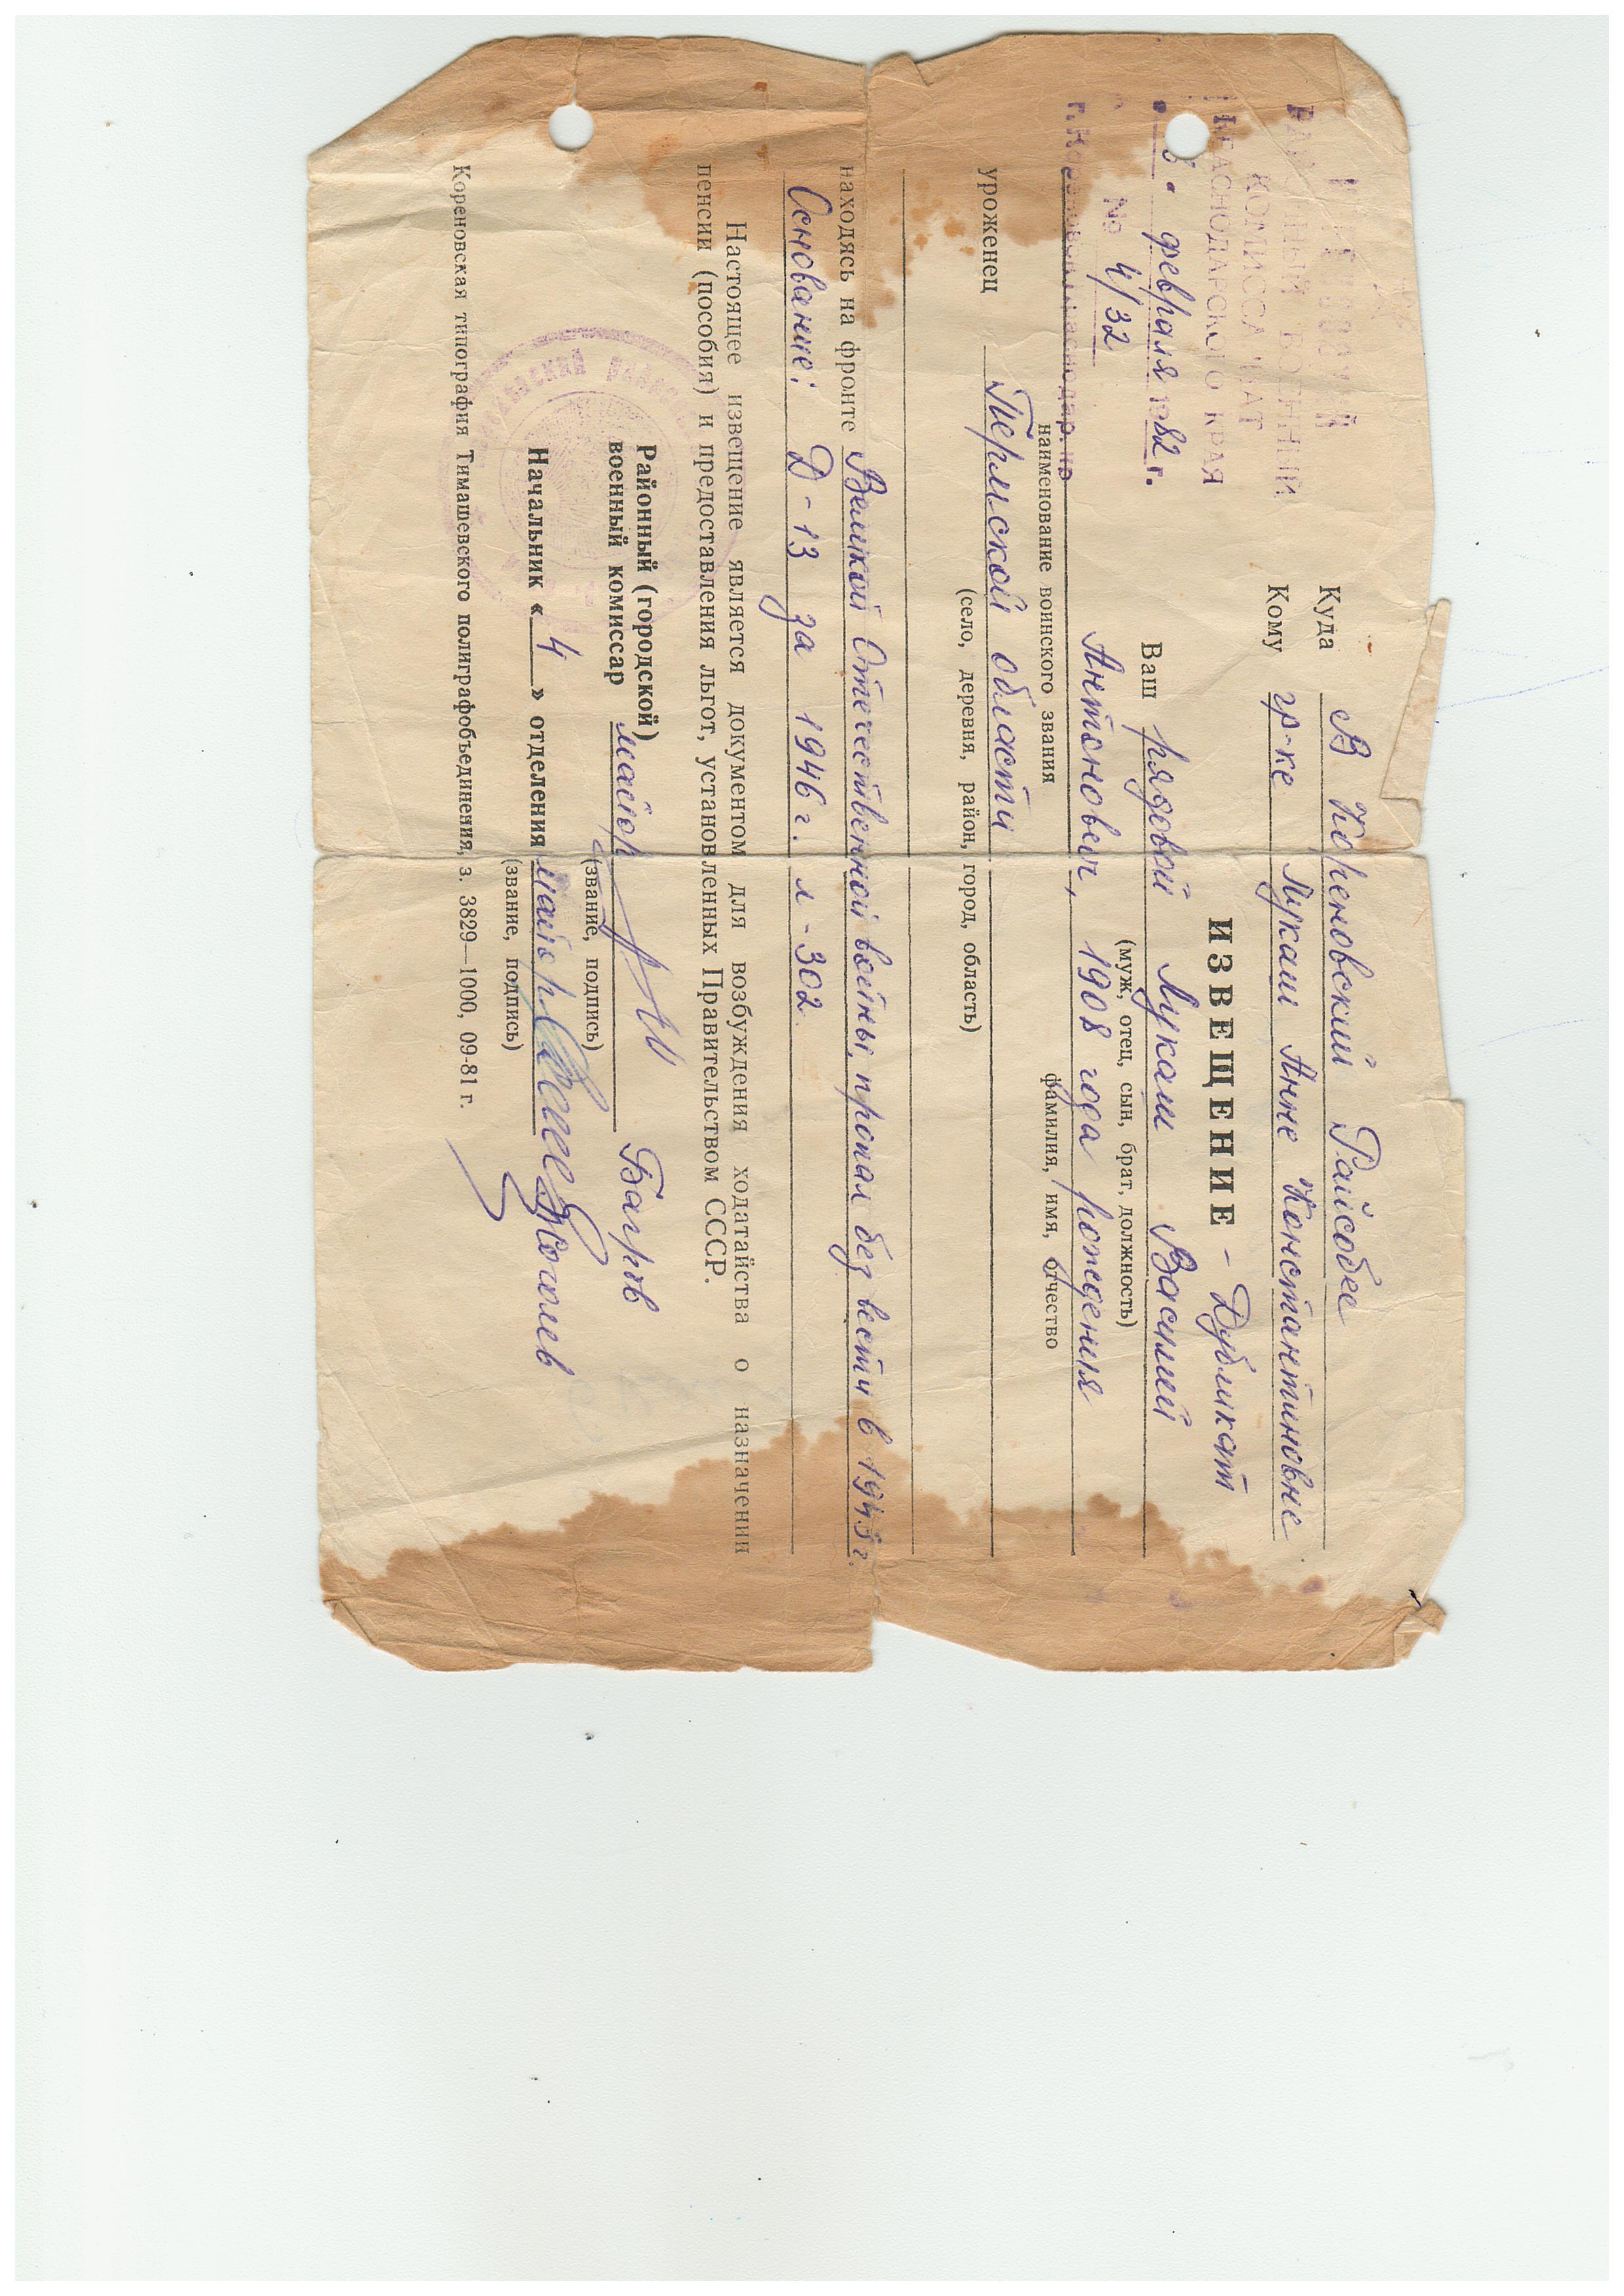 РАЙОННЫЙ ВОЕННЫЙ
КОМИССАРИАТ
КРАСНОДАРСКОГО КРАЯ
февраля 1982 г.
№ 4/32
Куда В Кореновский Райсобес
Кому гр-ке Лукаш Анне Константиновне
ИЗВЕЩЕНИЕ - Дубликат
Ваш рядовой Лукаш Василий
(муж, отец, сын, брат, должность)
Антонович, 1908 года рождения
наименование воинского звания фамилия, имя, отчество
уроженец Пермской области
(село, деревня, район, город, область)
находясь на фронте Великой Отечественной войны, пропал без вести в 1943 г.
Основание: Д-13 за 1946 г. л-302
Настоящее извещение является документом для возбуждения ходатайства о назначении
пенсии (пособия) и предоставления льгот, установленных Правительством СССР.
Районный (городской)
военный комиссар майор Багров
(звание, подпись)
Начальник «4» отделения майор
(звание, подпись)
Кореновская типография Тимашевского полиграфобъединения, з. 3829—1000, 09-81 г.